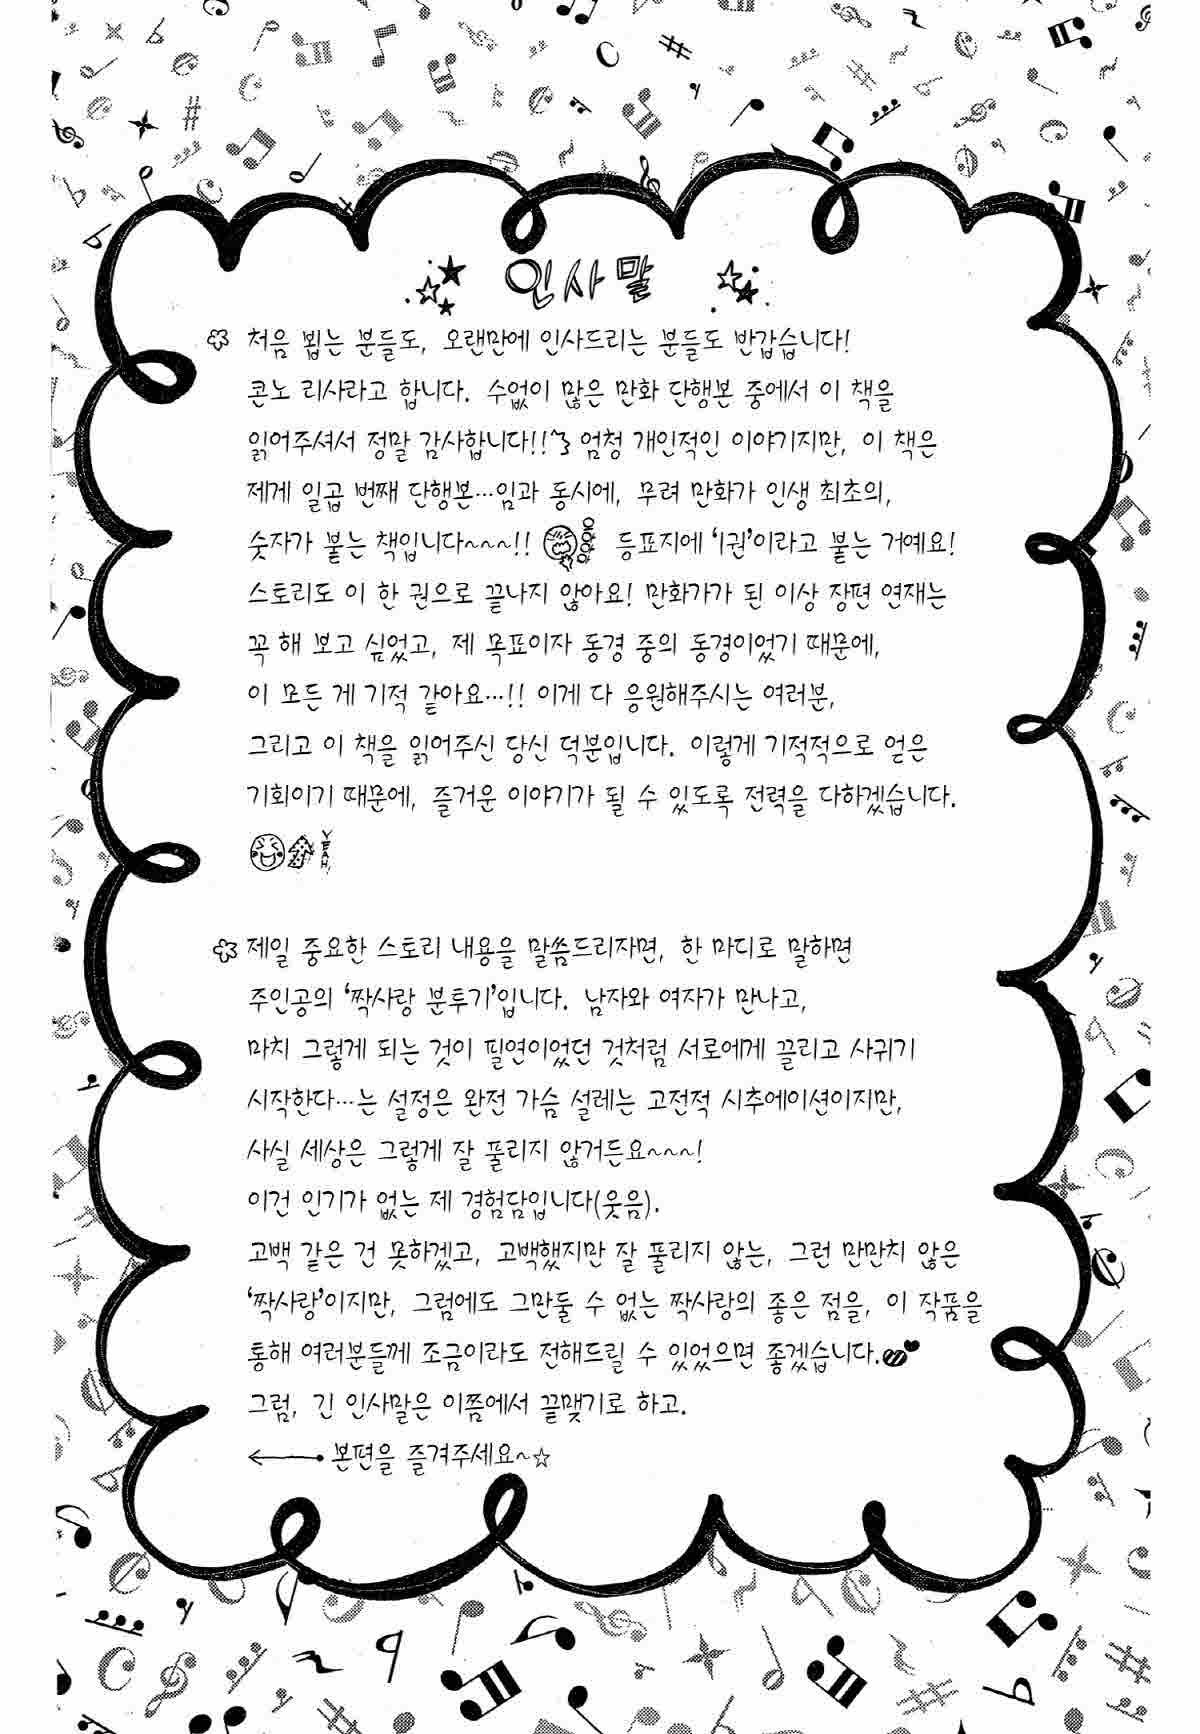 인사말
처음 뵙는 분들도, 오랜만에 인사드리는 분들도 반갑습니다!
콘노 리사라고 합니다. 수없이 많은 만화 단행본 중에서 이 책을
읽어주셔서 정말 감사합니다!!~ 엄청 개인적인 이야기지만, 이 책은
제게 일곱 번째 단행본…임과 동시에, 무려 만화가 인생 최초의,
숫자가 붙는 책입니다~~~!! 등표지에 '1권'이라고 붙는 거예요!
스토리도 이 한 권으로 끝나지 않아요! 만화가가 된 이상 장편 연재는
꼭 해 보고 싶었고, 제 목표이자 동경 중의 동경이었기 때문에,
이 모든 게 기적 같아요…!! 이게 다 응원해주시는 여러분,
그리고 이 책을 읽어주신 당신 덕분입니다. 이렇게 기적적으로 얻은
기회이기 때문에, 즐거운 이야기가 될 수 있도록 전력을 다하겠습니다.
YEAH!
제일 중요한 스토리 내용을 말씀드리자면, 한 마디로 말하면
주인공의 '짝사랑 분투기'입니다. 남자와 여자가 만나고,
마치 그렇게 되는 것이 필연이었던 것처럼 서로에게 끌리고 사귀기
시작한다…는 설정은 완전 가슴 설레는 고전적 시추에이션이지만,
사실 세상은 그렇게 잘 풀리지 않거든요~~~!
이건 인기가 없는 제 경험담입니다(웃음).
고백 같은 건 못하겠고, 고백했지만 잘 풀리지 않는, 그런 만만치 않은
'짝사랑'이지만, 그럼에도 그만둘 수 없는 짝사랑의 좋은 점을, 이 작품을
통해 여러분들께 조금이라도 전해드릴 수 있었으면 좋겠습니다.
그럼, 긴 인사말은 이쯤에서 끝맺기로 하고.
← 본편을 즐겨주세요~☆